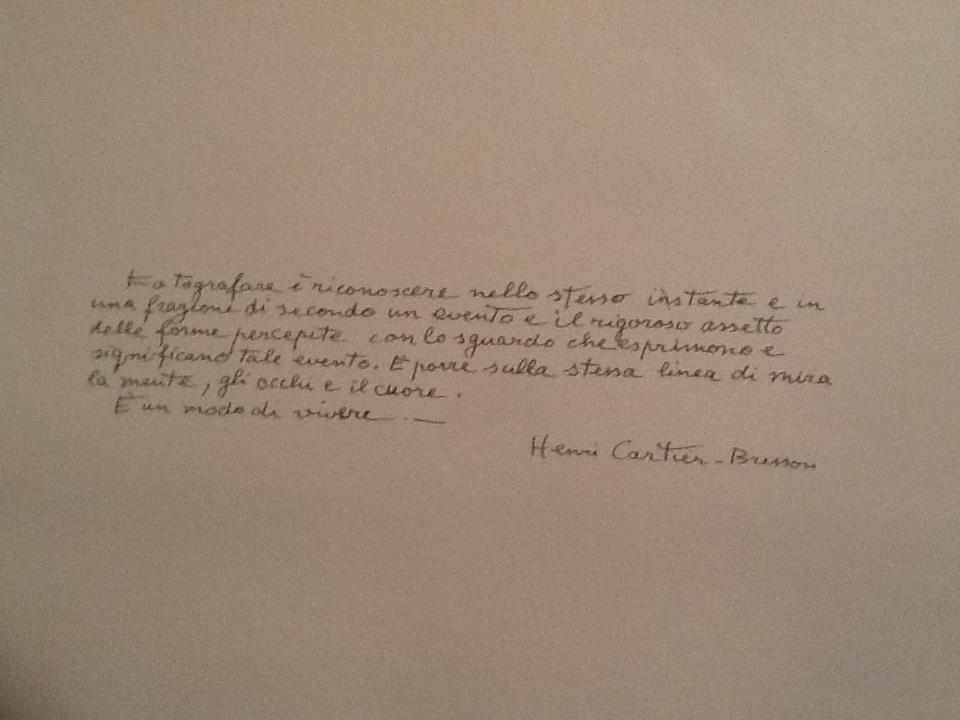 Fotografare è riconoscere nello stesso instante e in
una frazione di secondo un evento e il rigoroso assetto
delle forme percepite con lo sguardo che esprimono e
significano tale evento. È porre sulla stessa linea di mira
la mente, gli occhi e il cuore.
È un modo di vivere.—
Henri Cartier-Bresson